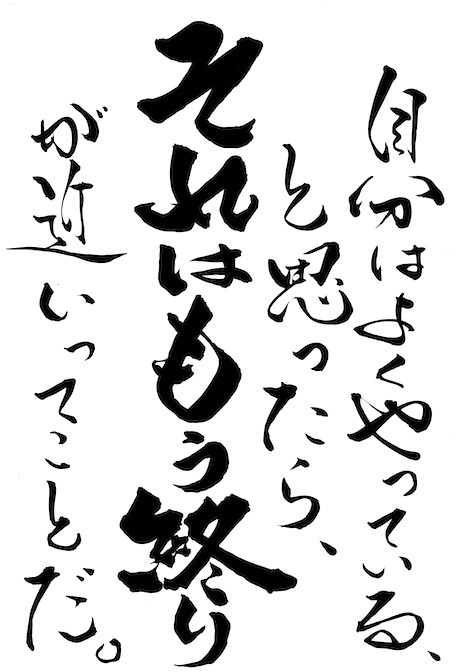 自分はよくやっている、
と思ったら、
それはもう終り
が近いってことだ。